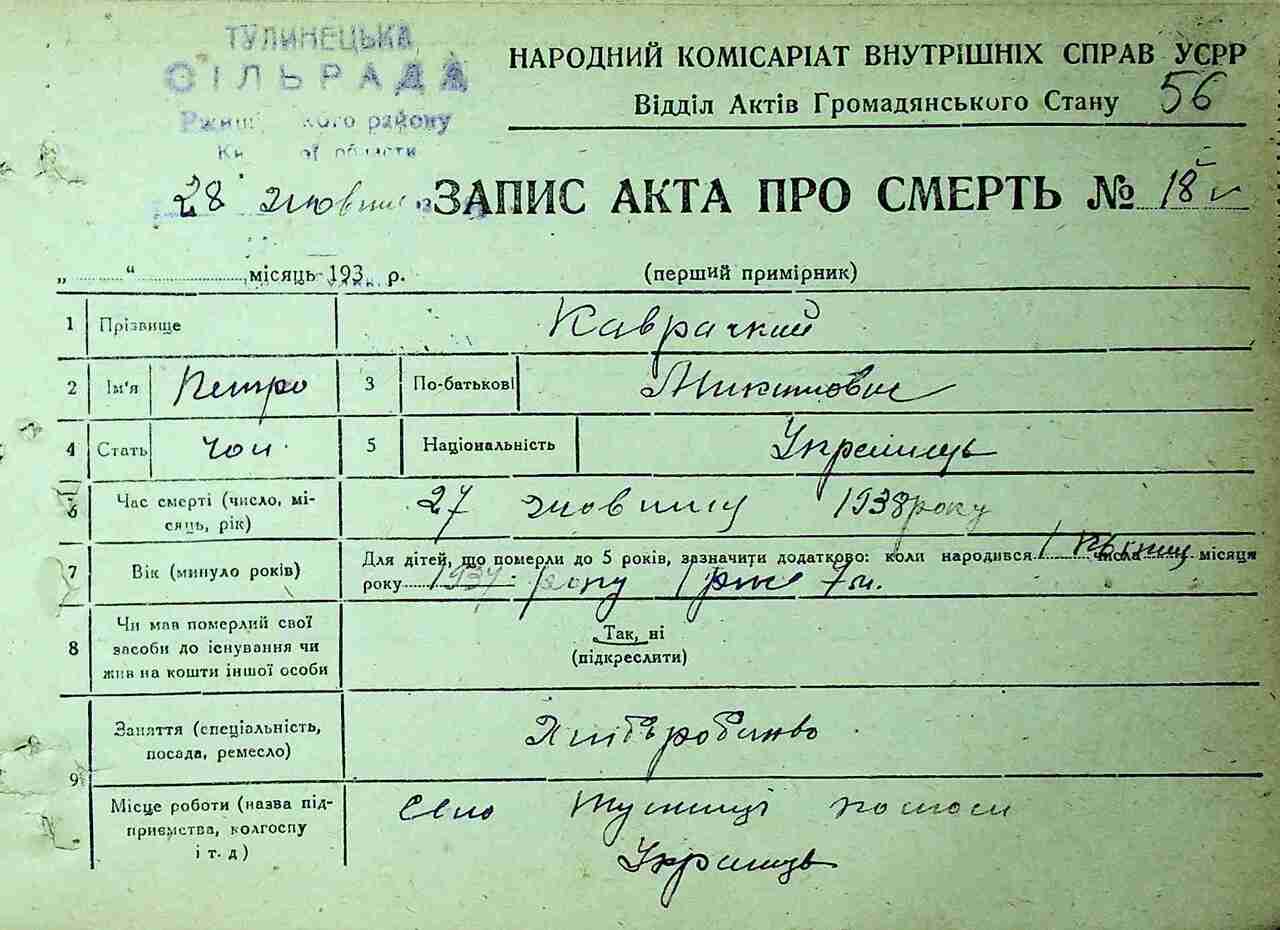 ТУЛИНЕЦЬКА
СІЛЬРАДА
району
области
НАРОДНИЙ КОМІСАРІАТ ВНУТРІШНІХ СПРАВ УСРР
Відділ Актів Громадянського Стану 56
28 ЗАПИС АКТА ПРО СМЕРТЬ № 18
„ “ місяць 193 р. (перший примірник)
1 Прізвище Каврачкий
2 Ім'я Петро 3 По-батькові Микитович
4 Стать чол. 5 Національність Українець
6 Час смерті (число, мі-
сяць, рік) 27 жовтня 1938 року
7 Вік (минуло років) Для дітей, що померли до 5 років, зазначити додатково: коли народився 1 числа місяця
року 1937 року 1 рік 7 м.
8 Чи мав померлий свої
засоби до існування чи
жив на кошти іншої особи
Так, ні
(підкреслити)
9 Заняття (спеціальність,
посада, ремесло) Хліборобство
Місце роботи (назва під-
приємства, колгоспу
і т. д) Село Тулинці колгосп
Українець